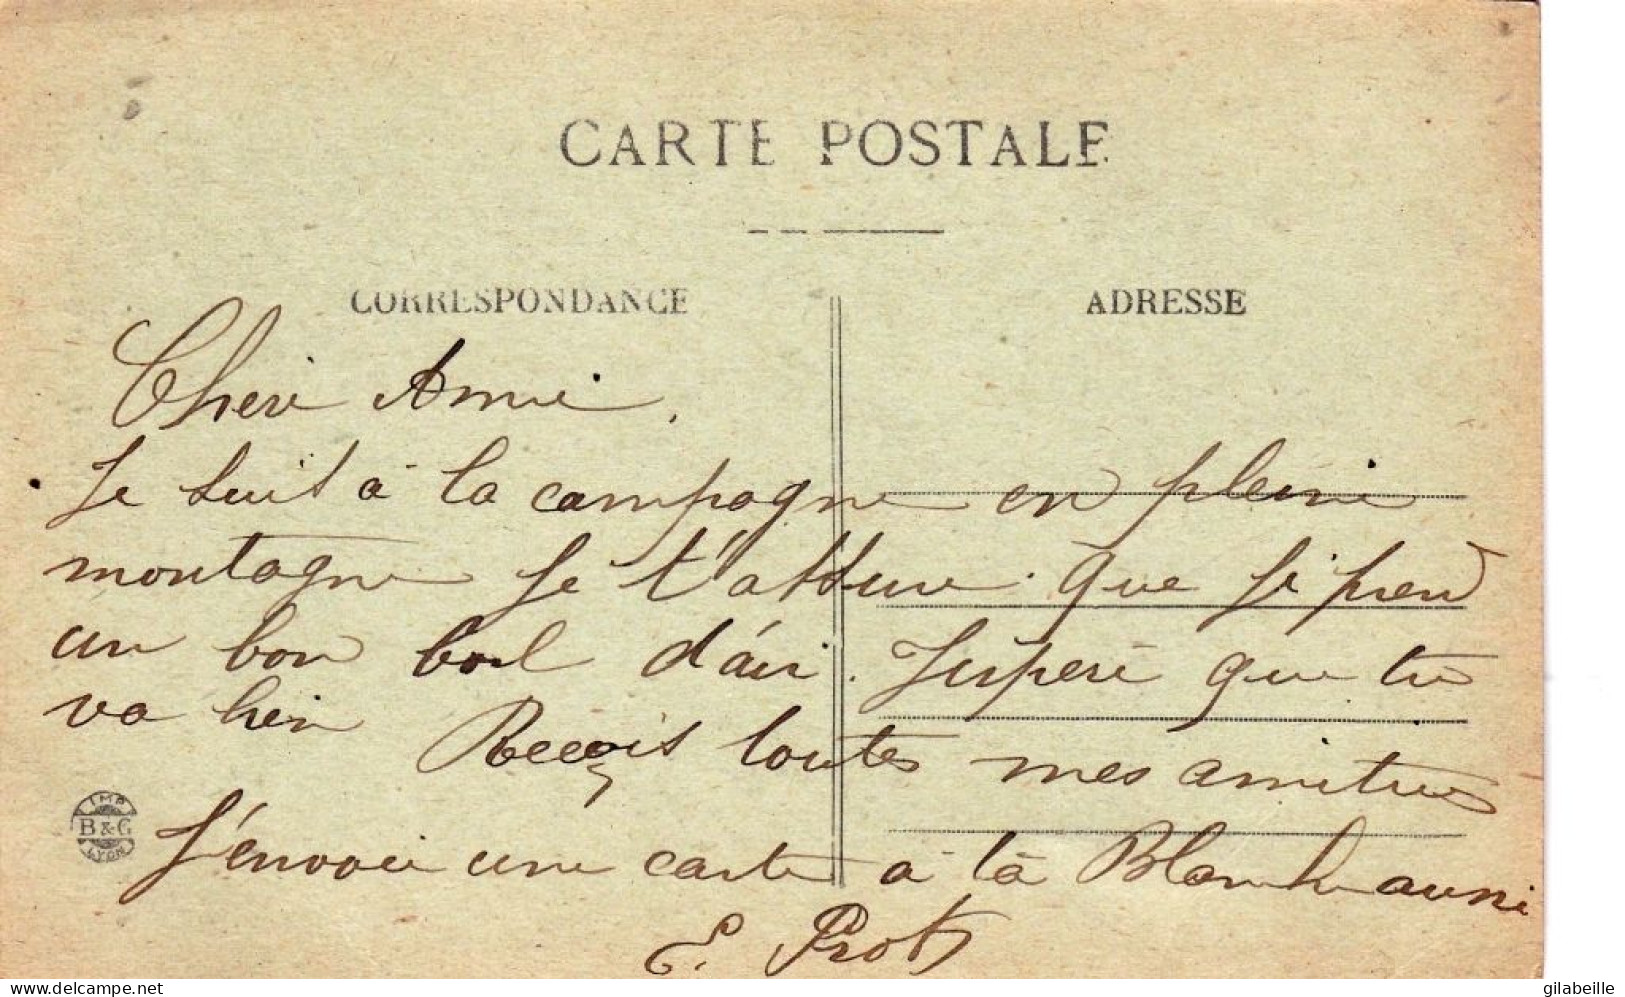 CARTE POSTALE
CORRESPONDANCE
ADRESSE
Cheri Amie,
Je suit à la campagne en pleine
montagne Je t'assure que Je prend
un bon bol d'air. J'esperè que tu
va bien Reçois toutes mes amities
J'envoie une carte a là Blanche aussi
E. Prot
IMP
B & G
LYON
gilabeille